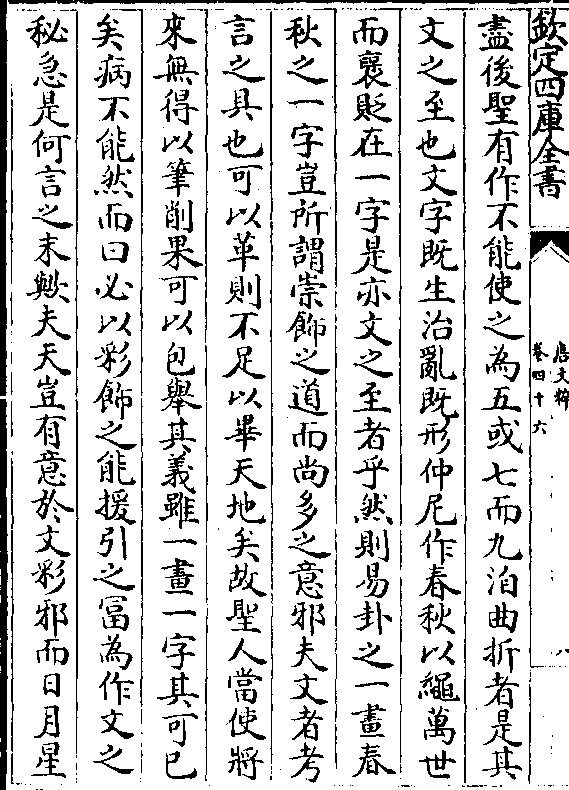 欽定四庫全書
唐文粹
卷四十六
八
盡後聖有作不能使之為五或七而九洎曲折者是其
文之至也文字既生治亂既形仲尼作春秋以繩萬世
而襃貶在一字是亦文之至者乎然則易卦之一畫春
秋之一字豈所謂崇飾之道而尚多之意邪夫文者考
言之具也可以革則不足以畢天地矣故聖人當使將
來無得以筆削果可以包舉其義雖一畫一字其可已
矣病不能然而曰必以彩飾之能援引之富為作文之
秘急是何言之末歟夫天豈有意於文彩邪而日月星